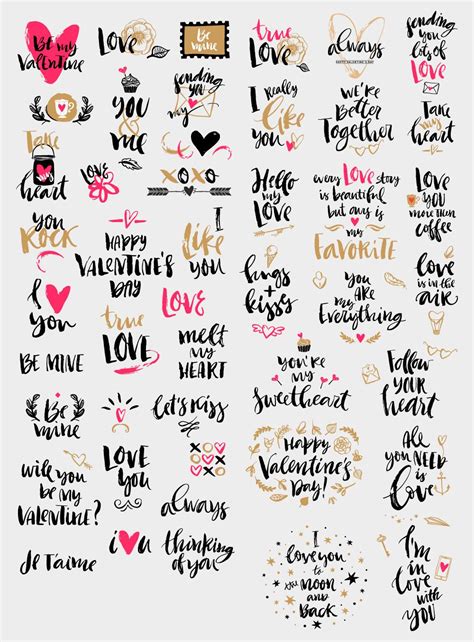 Be my
VALENTINE
Love
Be
mine
true
LOVE
always
HAPPY VALENTINE'S DAY
sending
you
lots of
LOVE
Take
my
heart
YOU
&
me
sending
YOU
my
I
Really
like
you
we're
Better
Together
Take
my
heart
LOVE
XOXO
Hello
my
LOVE
every LOVE story
is beautiful
but ours is
my
FAVORITE
Love
YOU
more then
coffee
you
ROCK
HAPPY
VALENTINE'S
DAY
I
Like
you
hugs
+
kisses
you
ARE
my
Everything
love
is in the
air
I
you
true
LOVE
LOVE
melt
my
HEART
BE MINE
you're
my
Sweetheart
Follow
YOUR
heart
Be
mine
let's kiss
will you
be my
VALENTINE?
LOVE
you
XOX
always
Happy
Valentine's
Day!
All
you
NEED
is
Love
Je T'aime
i u
thinking
of you
I
love you
to
the moon
and
BACK
I'm
in
Love
with
YOU